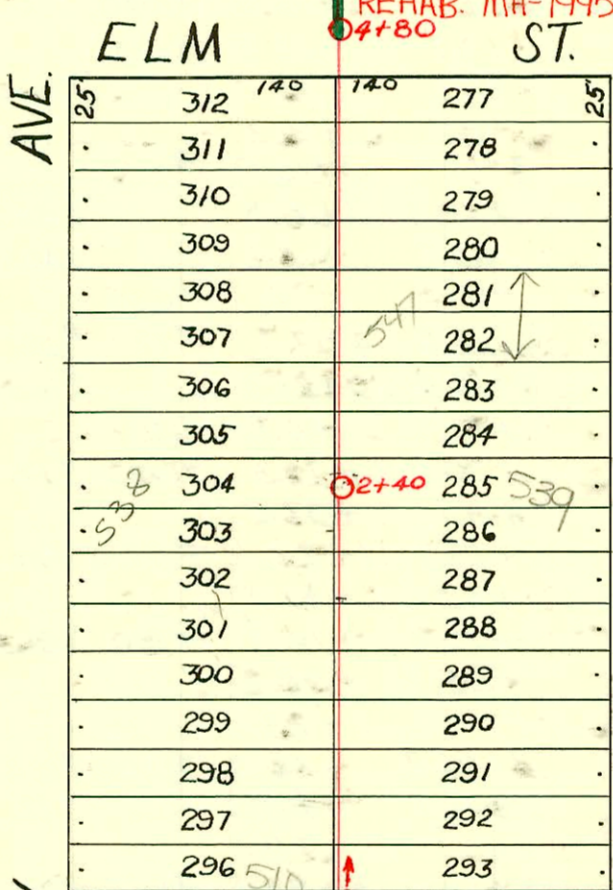 REHAB. MA-1995
4+80
ELM ST.
AVE.
25' 312 140 140 277 25'
311 278
310 279
309 280
308 281
547
307 282
306 283
305 284
304 2+40 285
538 539
303 286
302 287
301 288
300 289
299 290
298 291
297 292
296 510 293